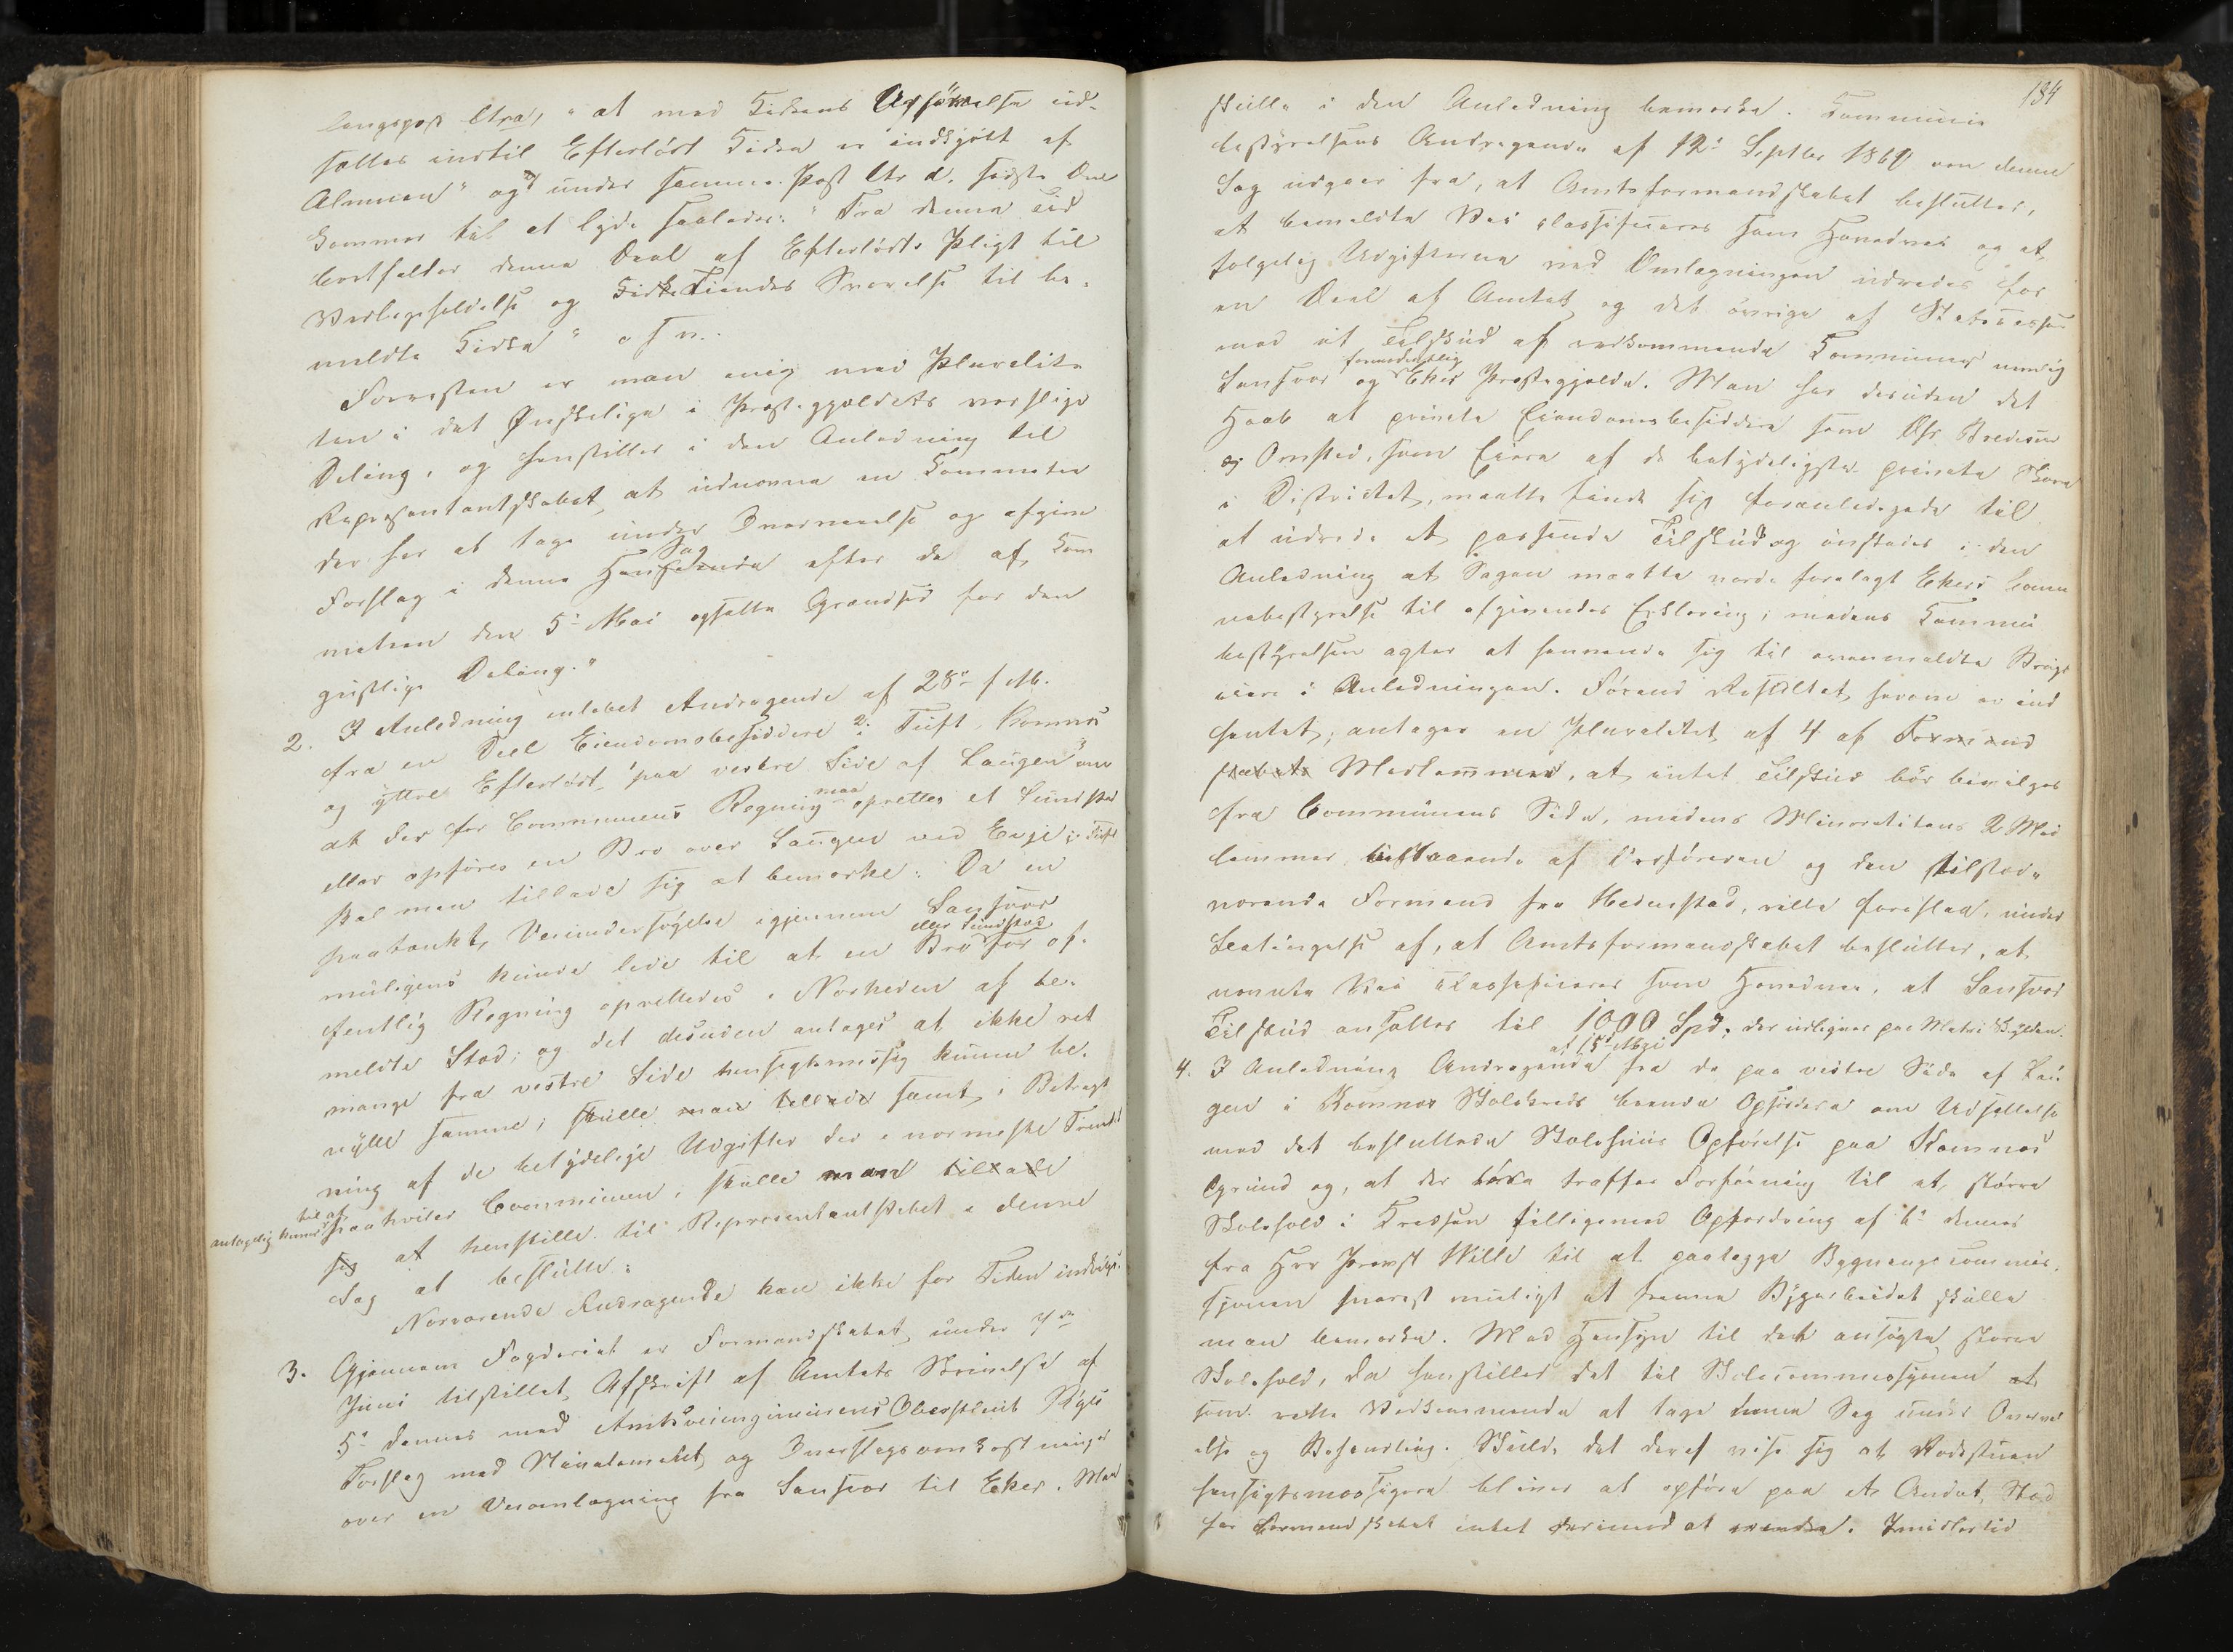 langspost Ltra, "at med Kirkens Opførelse ud-
sættes indtil Efterlødt Kirke er indskjøtt af
Almuen" og under samme Post Ltr d. sidste Deel
kommer til at lyde saaledes: "Fra denne Tid
bortfalder denne Deel af Efterlødts Pligt til
Vedligeholdelse og Kirketiendes Svarelse til be-
meldte Kirke" osv.
Forresten er man enig med Pluralite-
ten i det Ønskelige i Præstegjeldets verslige
Deling, og henstilles i den Anledning til
Repræsentantskabet at udnævne en Kommittee
der har at tage under Overveielse og afgive
Sag
Forslag i denne Henseende efter de af Kom
miteen den 5te Mai opsatte Grændser for den
geistlige Deling."
2. I Anledning indløbet Andragende af 28de f. M.
fra en Deel Eiendomsbesiddere i Tuft, Komnæs
og yttre Efterlödt paa vestre Side af Laugen om
maa
at der for Communens Regning oprettes et Sundsted
eller opføres en Bro over Laugen ved Evje i Tuft
skal man tillade sig at bemærke: Da en
paatænkt Veiundersøgelse igjennem Sansvær
eller Sundsted
muligens kunde lede til at en Bro for of-
fentlig Regning oprettedes i Nærheden af be-
meldte Sted; og det desuden antages at ikke ret
mange fra vestre Side hensigtsmæssig kunne be-
nytte samme; skulle man tillade samt i Betragt
ning af de betydelige Udgifter der i nærmeste Fremtid
til at
antagelig kunne paahviler Communen, skulle man tillade
sig at henstille til Repræsentantskabet i denne
Sag at beslutte:
Nærværende Andragende kan ikke for Tiden indvilges.
3. Gjennem Fogderiet er Formandskabet under 7de
Juni tilstillet Afskrift af Amtets Skrivelse af
5te dennes med Amtsveiingeniørens Oberstleit
Forslag med Nivalement og Overslagsomkostninger
over en Veiomlægning fra Sansvær til Eker. Man
134
skulle i den Anledning bemærke. Kommune
bestyrelsens Andragende af 12te Septbr 1860 om denne
Sag udgaaer fra, at Amtsformandskabet beslutter,
at bemeldte Vei classificeres som Hovedvei og at
følgelig Udgifterne ved Omlægningen udredes for
en Deel af Amtet og det øvrige af Statscassen
med et Tilskud af vedkommende Kommuner nemlig
formodentlig
Sansvær og Ekers Præstegjelde. Man har desuden det
Haab at private Eiendomsbesiddere som Hr Bredesen
og Omsted, som Eiere af de betydeligste private Skove
i Districtet, maatte finde sig foranledigede til
at udrede et passende Tilskud og ønskedes i den
Anledning at Sagen maatte vorde forelagt Ekers Komm
nebestyrelse til afgivendes Erklæring; medens Kommu
bestyrelsen agter at henvende sig til ovenmeldte Brugs
eiere i Anledningen. Førend Resultatet herom er ind
hentet, antager en Pluralitet af 4 af Formand
skabets Medlemmer, at intet Tilskud bør bevilges
fra Communens Side, medens Minoritetens 2 Med
lemmer, bestaaende af Ordføreren og den tilstede
værende Formand fra Hedenstad, ville foreslaa, under
Betingelse af, at Amtsformandskabet beslutter, at
nævnte Vei classificeres som Hovedvei, at Sansvær
Tilskud ansættes til 1000 Spd, der udlignes paa Matrikelskylden.
af 15de Mai
4. I Anledning Andragende fra de paa vestre Side af Lau
gen i Komnæs Skolekreds boende Opsiddere om Udsættelse
med det besluttede Skolehuus Opførelse paa Komnæs
Grund og, at der træffes Forføining til et større
Skolehold i Kredsen tilligemed Opfordring af 6te dennes
fra Hrr Provst Wille til at paalægge Bygningscommis-
sionen snarest muligt at fremme Bygarbeidet skulle
man bemærke. Med Hensyn til det ansøgte større
Skolehold, da henstilles det til Skolecommissionen at
som rette Vedkommende at tage denne Sag under Overvei
else og Behandling. Skulde det deraf vise sig at Rodestuen
hensigtsmæssigere bliver at opføre paa et Andet Sted
har Formandskabet intet derimod at erindre. Imidlertid